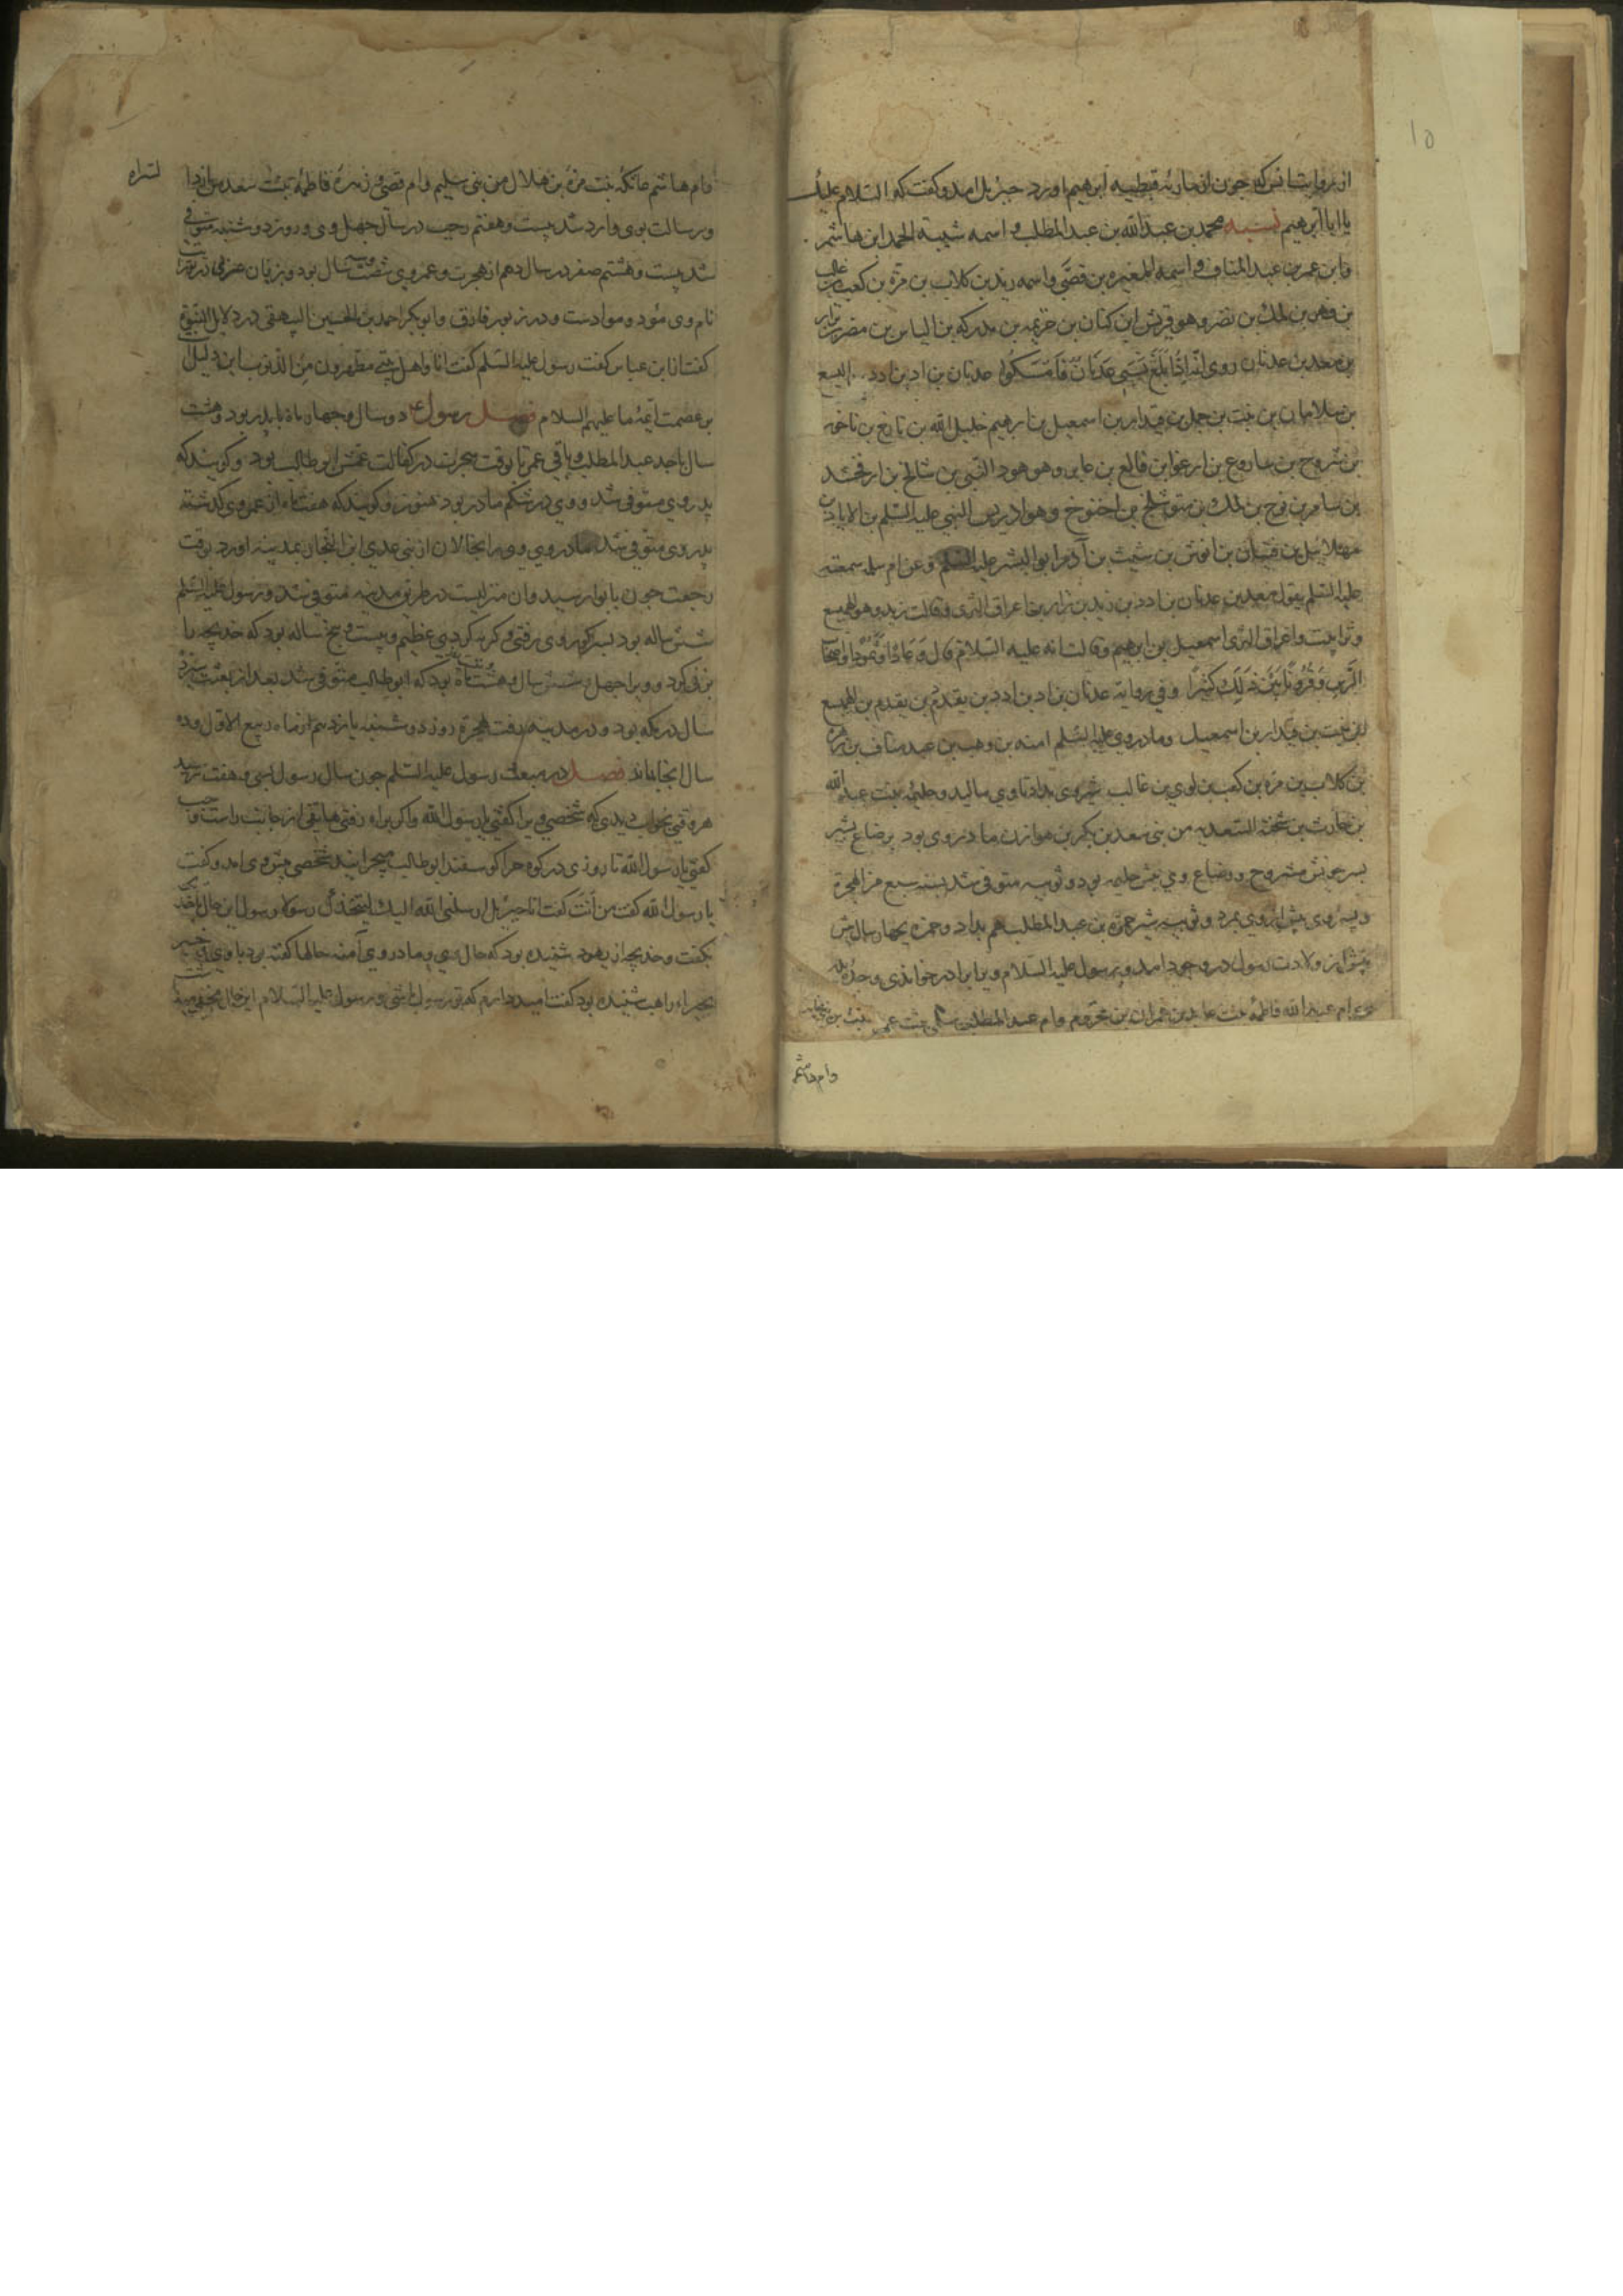 10
از روایت انس که چون از ماریه قبطیه ابرهیم اورد جبرئیل امد و کفت که السلام علیک
یا ابا ابرهیم نسبه محمد بن عبد الله بن عبد المطلب و اسمه شیبة الحمد ابن هاشم
و ابن عمر بن عبد المناف و اسمه المغیره بن قصی و اسمه زید بن کلاب بن مرة بن کعب بن غالب
بن فهر بن ملک بن نضر و هو قریش ابن کنان بن خزیمه بن مدرکه بن الیاس بن مضر بن نزار
بن معد بن عدنان روی انه اذا بلغ نسبی عدنان فامسکوا عدنان بن اد بن ادد الیسع
بن سلامان بن نبت بن حمل بن قیدار بن اسمعیل بن ابرهیم خلیل الله بن تارخ بن ناخور
بن شروخ بن ساروع بن ارعوا بن فالع بن عابر و هو هود النبی بن شالخ بن ارفخشد
بن سام بن نوح بن لمک بن متوشلخ بن اخنوخ و هو ادریس النبی علیه السلم بن
مهلائیل بن قینان بن انوش بن شیث بن آدم ابو البشر علیه السلم و عن ام سلمه سمعته
علیه السلم یقول معد بن عدنان بن ادد بن زید بن ثرا بن اعراق الثری و قالت زید و هو الهمیسع
و ثرا نبت و اعراق الثری اسمعیل بن ابرهیم و قالت انه علیه السلام قال وَ عَادًا وَ ثَمُودَا وَ اصحاب
الرَّسِ وَ قُرُونًا بَیْنَ ذَلِکَ کَثِیرًا و فی روایة عدنان بن اد بن ادد بن یقدم بن یقدم بن الهمیسع
ابن نبت بن قیدار بن اسمعیل و مادر وی علیه السلم امنه بن وهب بن عبد مناف بن زهره
بن کلاب بن مرة بن کعب بن لوی بن غالب شیر وی بداد تا وی بالید و حلیمه بنت عبد الله
بن حارث بن شخنة السعدیه من بنی سعد بن بکر بن هوازن مادر وی بود برضاع بشیر
بسر خویش مشروح و رضاع وی پیش حلیمه بود و ثویبه متوفی شد بسنه سبع من الهجرة
و پسر وی پیش از وی بمرد و ثویبه شیر حمزه بن عبد المطلب هم بداد و حمزه بچهار سال پیش
پیش از ولادت رسول در وجود امد و رسول علیه السلام ویرا برادر خواندی و جده
وی ام عبد الله فاطمه بنت عاید بن عمران بن مخزوم و ام عبد المطلب سلمی بنت عمر
و ام هاشم
و ام هاشم عاتکه بنت مرة بن هلال من بنی سلیم و ام قصی و زهره فاطمه بنت سعد
و رسالت بوی وارد شد بیست و هفتم رجب در سال چهل وی و روز دوشنبه متوفی
شد بیست و هشتم صفر در سال دهم از هجرت و عمر وی شصت و سه سال بود و بزبان عبرانی در توریة
نام وی مؤد و موادست و در زبور فارق و ابو بکر احمد بن الحسین البیهقی در دلایل النبوة
کفت انا ابن عباس کفت رسول علیه السلم کفت انا و اهل بیتی مطهرون من الذنوب این دلیل
بر عصمت ائمه ما علیهم السلام فصل رسول ع دو سال و چهار ماه با پدر بود و هشت
سال با جد عبد المطلب و باقی عمر تا بوقت هجرت در کفالت عمش ابو طالب بود و کویند که
پدر وی متوفی شد و وی در شکم مادر بود هنوز و کویند که هفت ماه از عمر وی گذشته
پدر وی متوفی شد مادر وی ویرا بخالان از بنی عدی ابن النجار بمدینه اورد بوقت
رجعت چون بابوا رسید و ان منزلیست در طریق مدینه متوفی شد و رسول علیه السلم
شش ساله بود بسر کور وی رفتی و کریه کردی عظیم و بیست و پنج ساله بود که خدیجه را
بزنی کرد و ویرا چهل و شش سال و هشت ماه بود که ابو طالب متوفی شد بعد از بعثت سیزده
سال در مکه بود و در مدینه رفت هجرة روز دوشنبه یازدهم از ماه ربیع الاول و ده
سال انجا بماند فصل در مبعث رسول علیه السلم چون سال رسول بسی و هفت رسید
هر وقتی بخواب دیدی که شخصی ویرا کفتی یا رسول الله و اکر براه رفتی هاتفی از جانب راست و چپ
کفتی یا رسول الله تا روزی در کوه حرا کوسفند ابو طالب میچرانید شخصی پیش وی امد و کفت
یا رسول الله کفت من اَنتَ کفت انا جبرئیل ارسلنی الله الیک لیتخذک رسولا رسول این حال با خدیجه
بکفت و خدیجه از یهود شنیده بود که حال وی و مادر وی آمنه حالها کفته بود با وی
بحیراء راهب شنیده بود کفت امید دارم که تو رسول باشی و رسول علیه السلام این حال مخفی میداشت